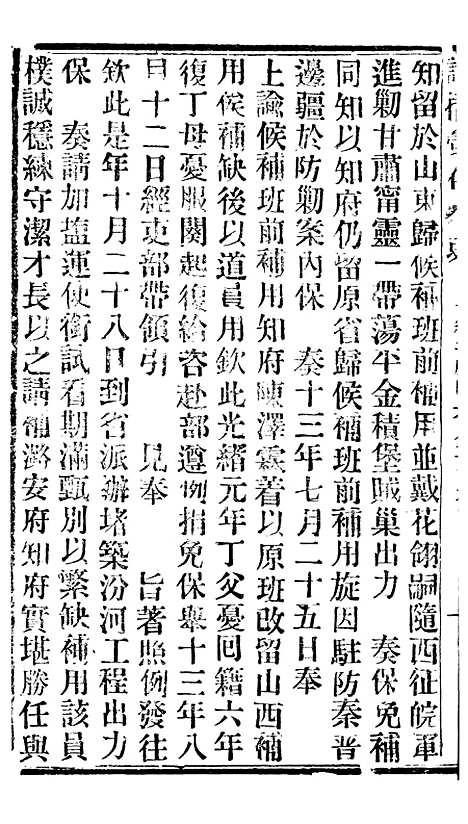 知留於山東歸候補班前補用並戴花翎嗣隨西征皖軍
進剿甘肅甯靈一帶蕩平金積堡賊巢出力　奏保免補
同知以知府仍留原省歸候補班前補用旋因駐防秦晉
邊疆於防剿案內保　奏十三年七月二十五日奉
上諭候補班前補用知府陳澤霖着以原班改留山西補
用俟補缺後以道員用欽此光緒元年丁父憂回籍六年
復丁母憂服闋起復給咨赴部遵例捐免保舉十三年八
月十二日經吏部帶領引　見奉　旨著照例發往
欽此是年十月二十八日到省派辦堵築汾河工程出力
保　奏請加塩運使銜試看期滿甄別以繁缺補用該員
樸誠穩練守潔才長以之請補潞安府知府實堪勝任與